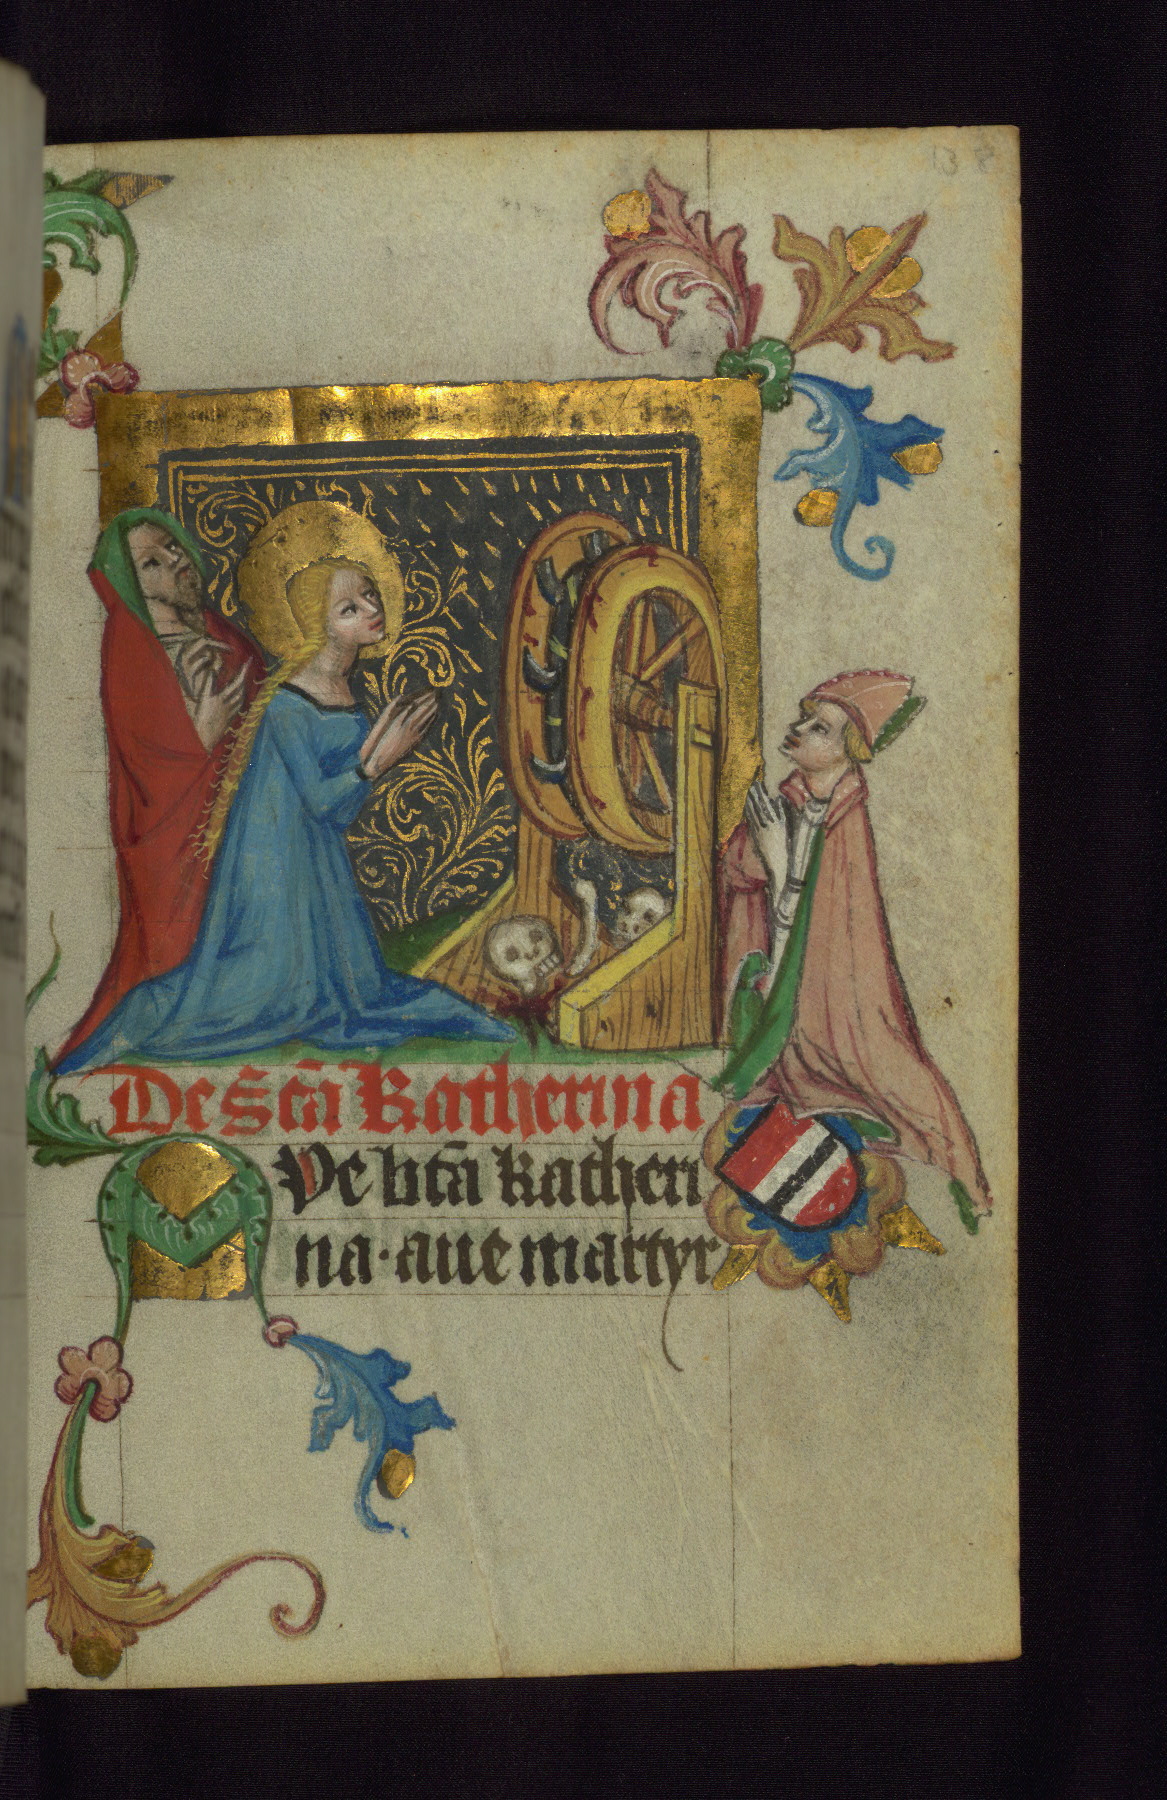 De s̄c̄ā Katherina
Ve bt̄ā katheri
na · aue martyr